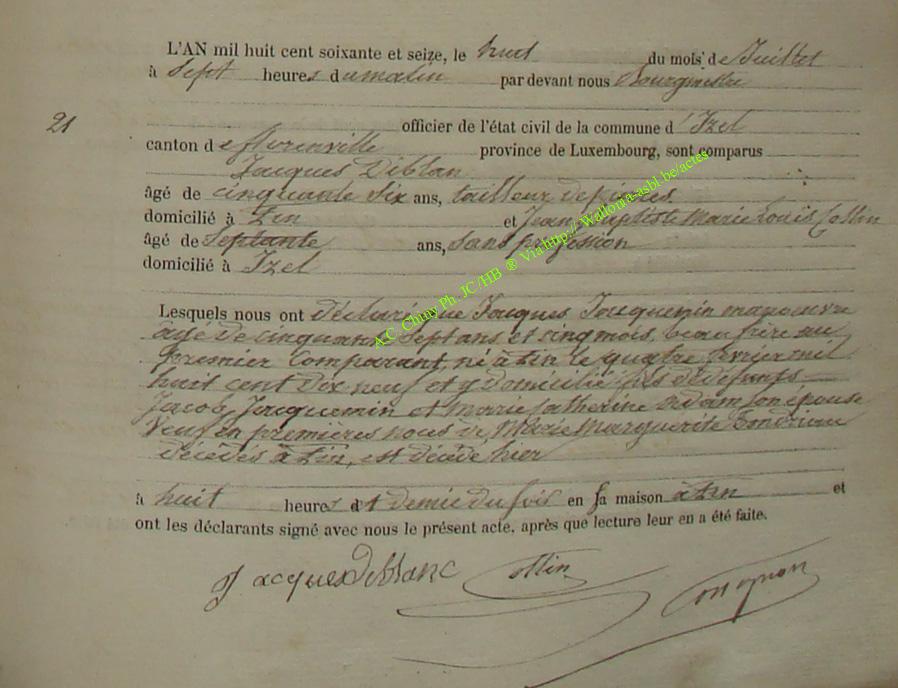 L'AN mil huit cent soixante et seize, le huit du mois de Juillet
à Sept heures du matin par devant nous Bourgmestre
21
officier de l'état civil de la commune d'Izel
canton de florenville province de Luxembourg, sont comparus
Jacques Diblan
âgé de cinquante six ans, tailleur de pierres
domicilié à Pin et Jean Baptiste Marie Louis Collin
âgé de Septante ans, Sans profession
domicilié à Izel
Lesquels nous ont déclaré que Jacques Jacquemin manoeuvre
âgé de cinquante Sept ans et cinq mois, beau frère au
premier Comparant, né à Pin le quatre fevrier mil
huit cent dix neuf et y domicilié fils de défunts
Jacob Jacquemin et Marie Catherine Adam son épouse
Veuf en premières noces de Marie Marguerite
décédés à Pin, est décédé hier
à huit heures et demie du soir en sa maison à Pin et
ont les déclarants signé avec nous le présent acte, après que lecture leur en a été faite.
Jacques Diblanc Collin
A.C. Chiny Ph. JC/HB ® Via http://Wallonia-asbl.be/actes